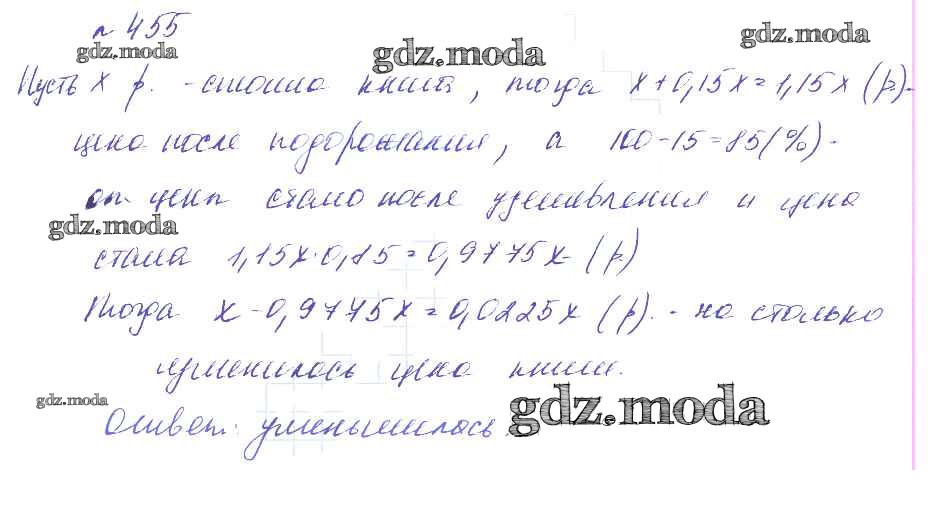 № 455
gdz.moda gdz.moda gdz.moda
Пусть x р. - стоила книга, тогда x+0,15x=1,15x (р.)-
цена после подорожания, а 100-15=85(%)-
от цены стало после удешевления и цена
gdz.moda
стала 1,15x·0,85=0,9775x (р.)
Тогда x-0,9775x=0,0225x (р). - на столько
уменшилась цена книги.
gdz.moda gdz.moda
Ответ: уменьшилась.